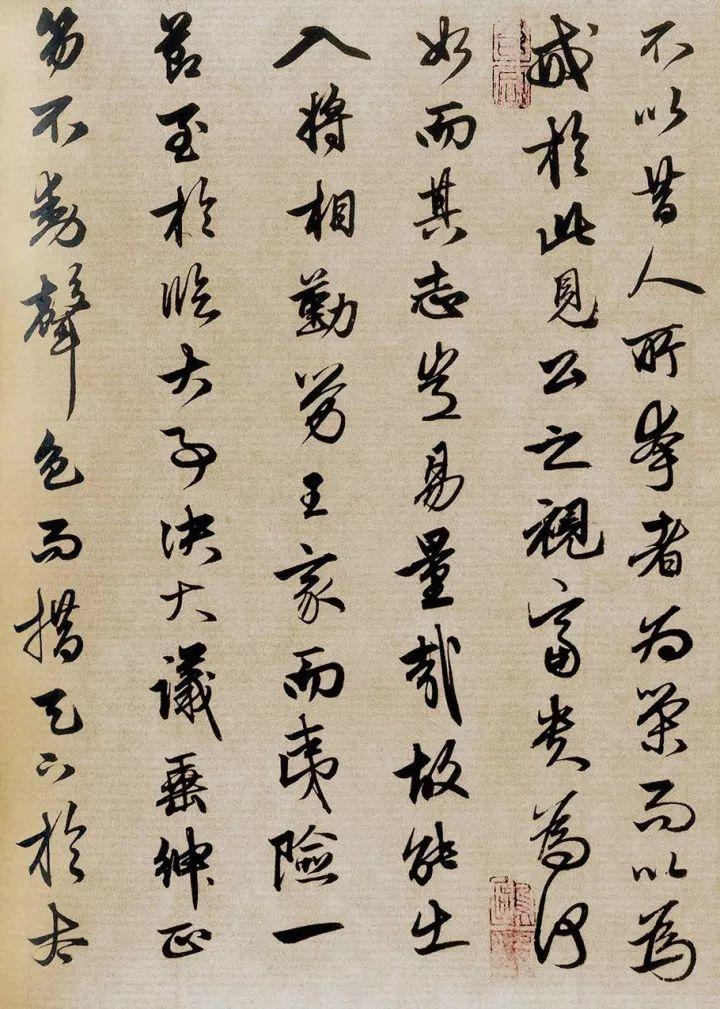 不以昔人所夸者为荣而以為
戒於此見公之視富贵為何
如而其志岂易量哉故能出
入将相勤劳王家而夷險一
节至於临大事决大議垂绅正
笏不動聲色而措天下於太